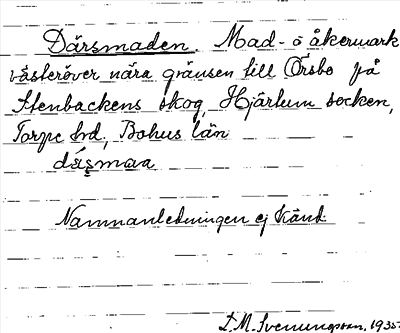 Därsmaden. Mad- o åkermark
västeröver nära gränsen till Örsbo på
Stenbackens skog, Hjärtum socken,
Torpe hrd, Bohus län
Namnanledningen ej känd.
L.M. Svenungsson, 1935